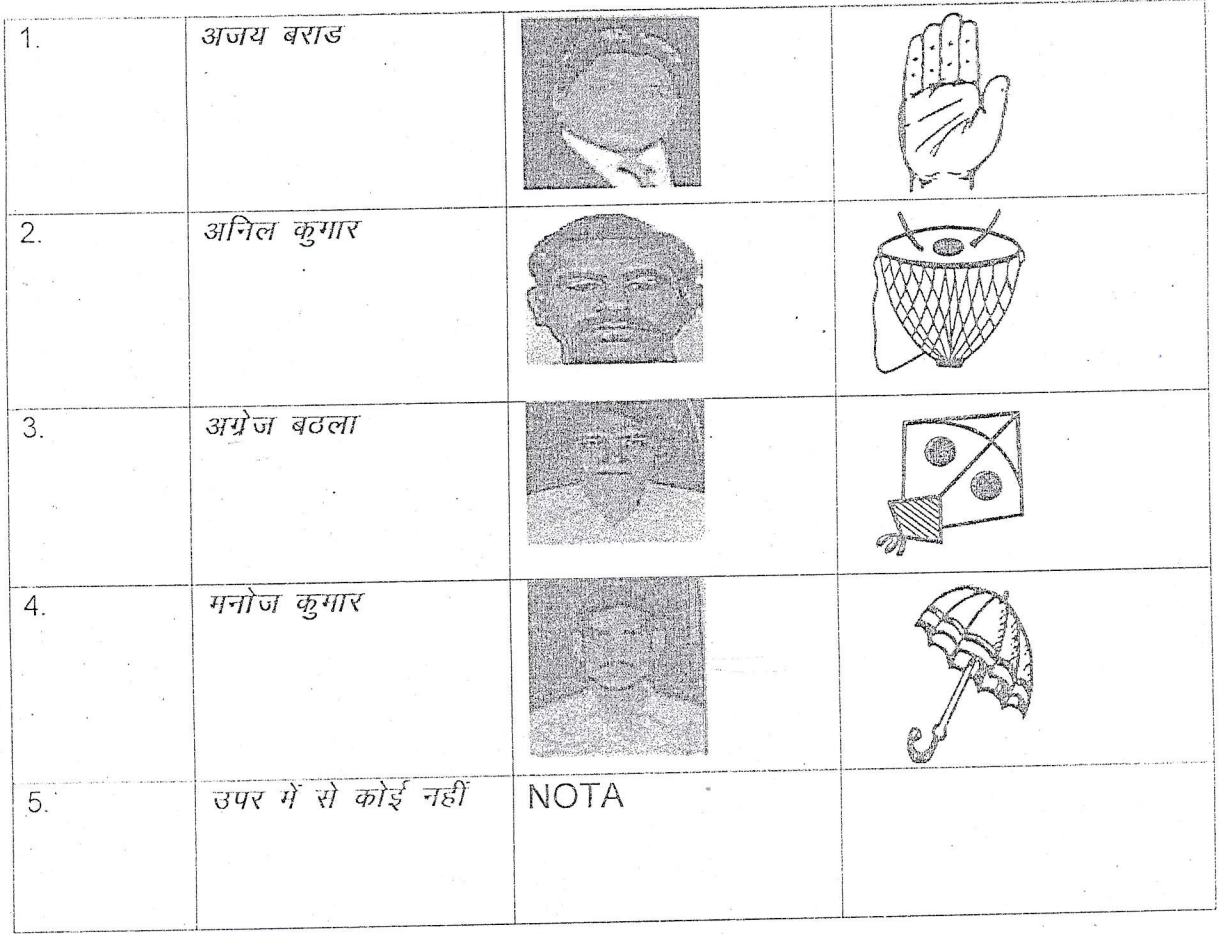 1. अजय बराड
2. अनिल कुगार
3. अग्रेज बठला
4. मनोज कुमार
5. उपर में से कोई नहीं NOTA